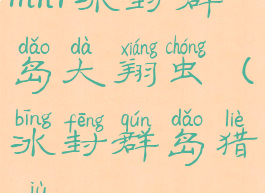 冰封群
dǎo dà xiáng chóng
岛大翔虫（
bīng fēng qún dǎo liè
冰封群岛猎